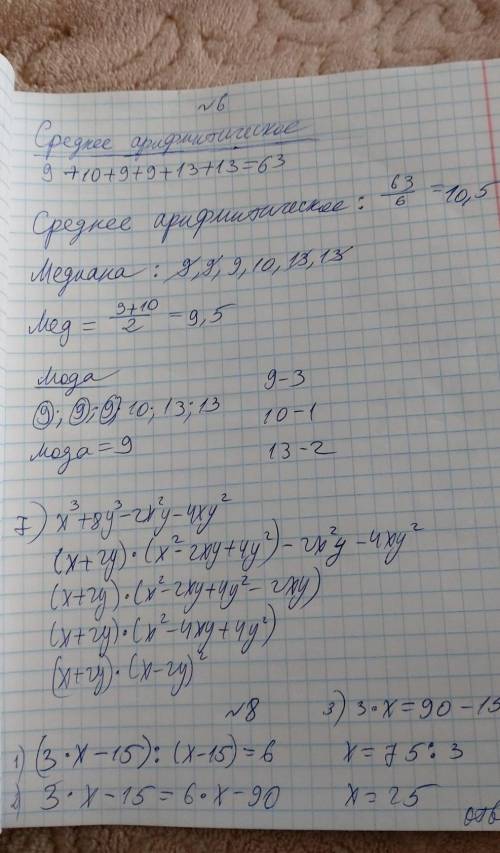 №6
Среднее арифмитическое
9+10+9+9+13+13=63
Среднее арифмитическое: 63/6=10,5
Медиана: 9,9,9,10,13,13
Мед = 9+10/2 = 9,5
Мода
9; 9; 9; 10; 13; 13
мода = 9
9-3
10-1
13-2
7) x³+8y³-2x²y-4xy²
(x+2y)·(x²-2xy+4y²)-2x²y-4xy²
(x+2y)·(x²-2xy+4y²-2xy)
(x+2y)·(x²-4xy+4y²)
(x+2y)·(x-2y)²
№8
1) (3·x-15):(x-15)=6
2) 3·x-15=6·x-90
3) 3·x=90-15
x=75:3
x=25
отв